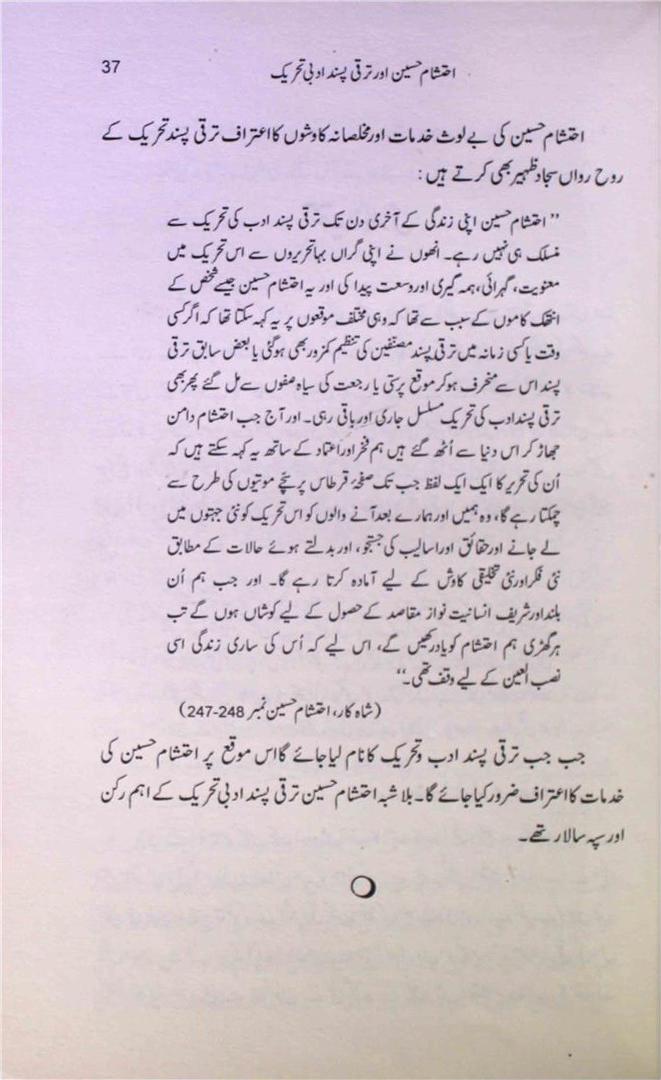 احتشام حسین اور ترقی پسند ادبی تحریک 37
احتشام حسین کی بے لوث خدمات اور مخلصانہ کاوشوں کا اعتراف ترقی پسند تحریک کے
روح رواں سجاد ظہیر بھی کرتے ہیں :
”احتشام حسین اپنی زندگی کے آخری دن تک ترقی پسند ادب کی تحریک سے
منسلک ہی نہیں رہے۔ انھوں نے اپنی گراں بہا تحریروں سے اس تحریک میں
معنویت، گہرائی، ہمہ گیری اور وسعت پیدا کی اور یہ احتشام حسین جیسے شخص کے
انتھک کاموں کے سبب سے تھا کہ وہی مختلف موقعوں پر یہ کہہ سکتا تھا کہ اگر کسی
وقت یا کسی زمانہ میں ترقی پسند مصنفین کی تنظیم کمزور بھی ہوگئی یا بعض سابق ترقی
پسند اس سے منحرف ہو کر موقع پرستی یا رجعت کی سیاہ صفوں سے مل گئے پھر بھی
ترقی پسند ادب کی تحریک مسلسل جاری اور باقی رہی۔ اور آج جب احتشام دامن
جھاڑ کر اس دنیا سے اُٹھ گئے ہیں ہم فخر اور اعتماد کے ساتھ یہ کہہ سکتے ہیں کہ
اُن کی تحریر کا ایک ایک لفظ جب تک صفحۂ قرطاس پر سچے موتیوں کی طرح سے
چمکتا رہے گا، وہ ہمیں اور ہمارے بعد آنے والوں کو اس تحریک کو نئی جہتوں میں
لے جانے اور حقائق اور اسالیب کی جستجو، اور بدلتے ہوئے حالات کے مطابق
نئی فکر اور نئی تخلیقی کاوش کے لیے آمادہ کرتا رہے گا۔ اور جب ہم اُن
بلند اور شریف انسانیت نواز مقاصد کے حصول کے لیے کوشاں ہوں گے تب
ہر گھڑی ہم احتشام کو یاد رکھیں گے، اس لیے کہ اُس کی ساری زندگی اسی
نصب العین کے لیے وقف تھی۔“
(شاہ کار، احتشام حسین نمبر 248-247)
جب جب ترقی پسند ادب و تحریک کا نام لیا جائے گا اس موقع پر احتشام حسین کی
خدمات کا اعتراف ضرور کیا جائے گا۔ بلا شبہ احتشام حسین ترقی پسند ادبی تحریک کے اہم رکن
اور سپہ سالار تھے۔